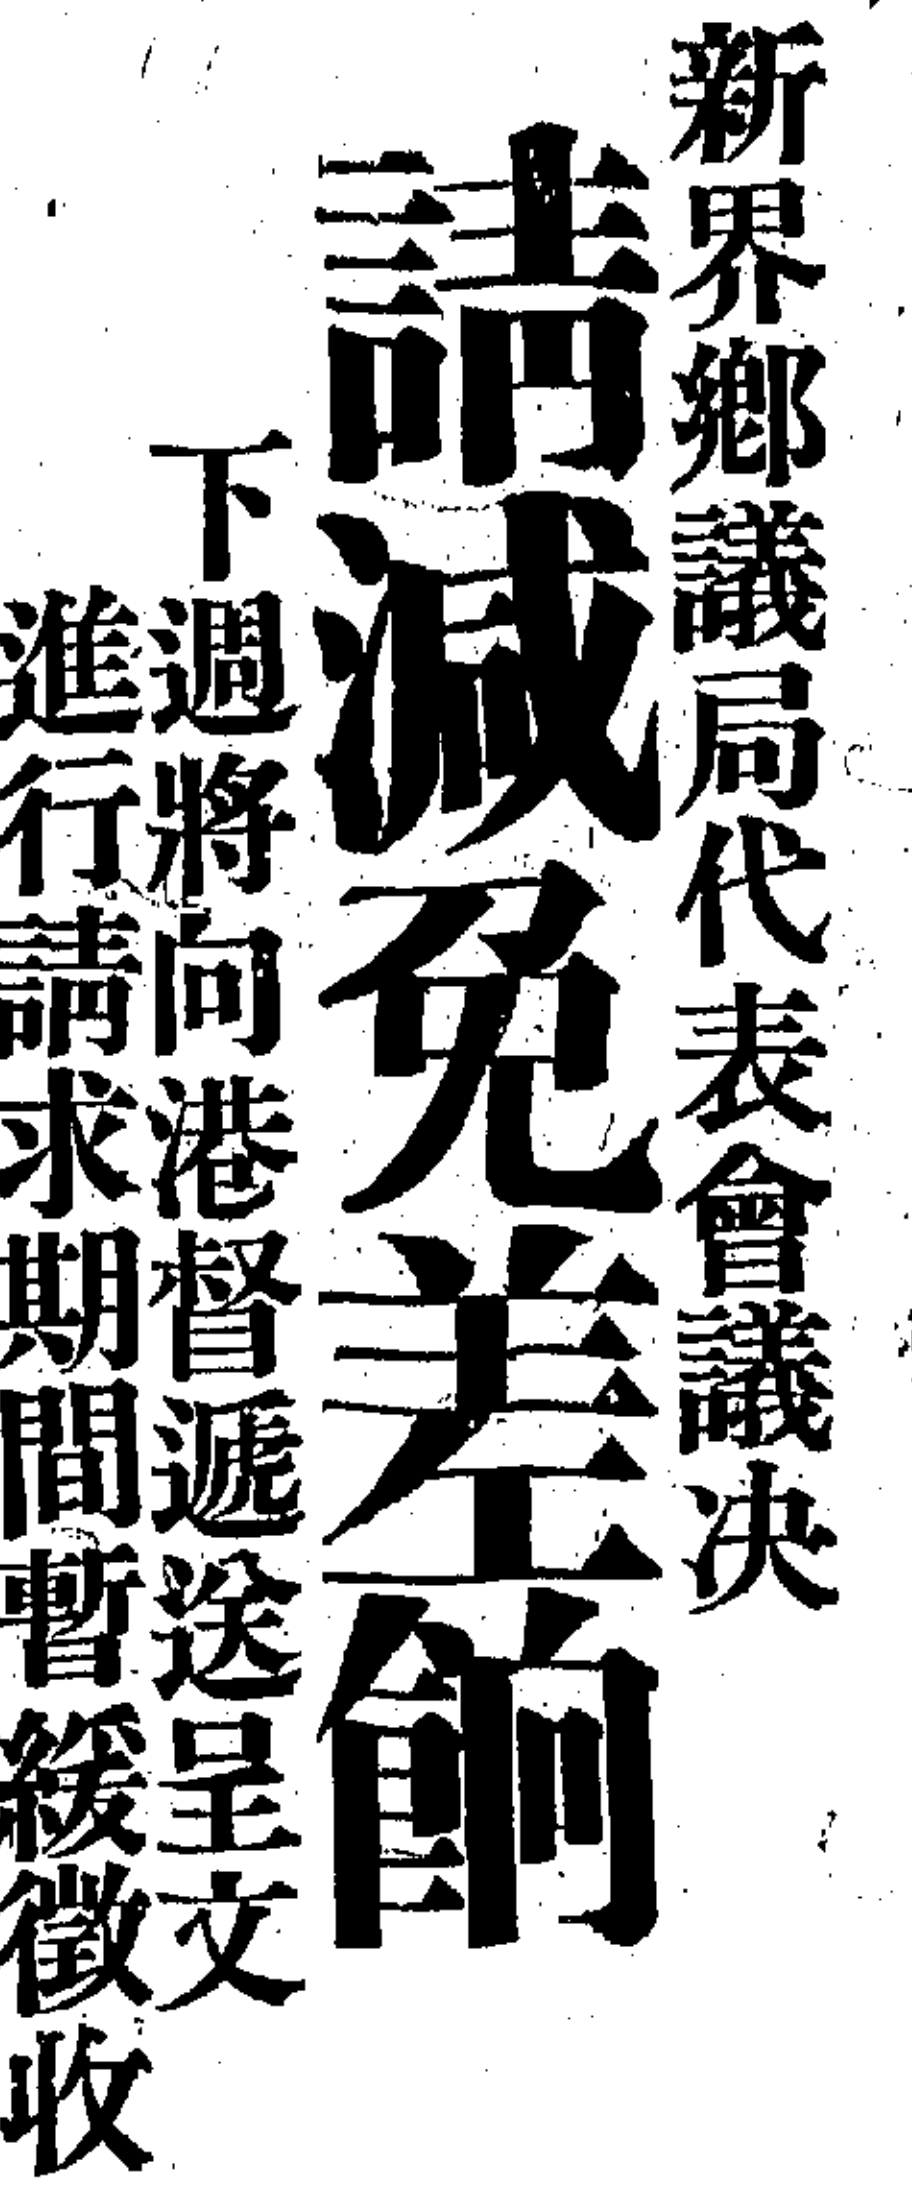 新界鄉議局代表會議决
請減免差餉
下週將向港督遞送呈文
進行請求期間暫緩徵收